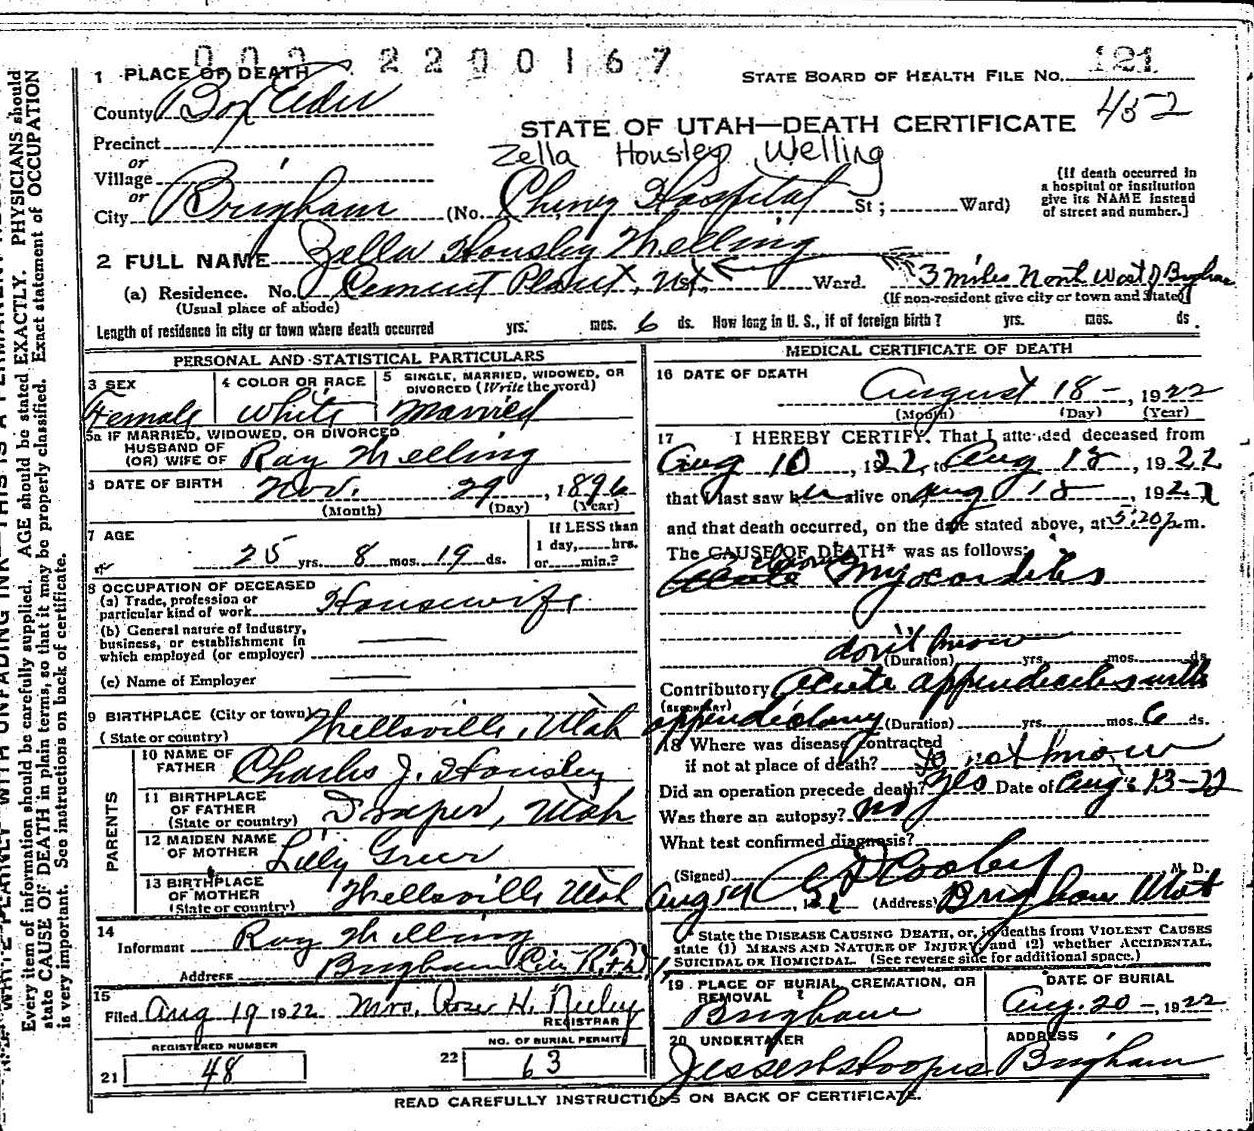 002 2200167
1 PLACE OF DEATH
STATE BOARD OF HEALTH FILE NO. 121
County Box Elder
452
STATE OF UTAH—DEATH CERTIFICATE
Precinct
Zella Housley Welling
or
Village
or
City Brigham (No. Hospital St; Ward)
(If death occurred in a hospital or institution give its NAME instead of street and number.]
2 FULL NAME Zella Housley Welling
(a) Residence. No. Cement Plant, Ut. Ward. 3 miles North West of Brigham
(Usual place of abode) (If non-resident give city or town and State)
Length of residence in city or town where death occurred yrs. mos. 6 ds. How long in U. S., if of foreign birth? yrs. mos. ds.
PERSONAL AND STATISTICAL PARTICULARS
3 SEX Female
4 COLOR OR RACE White
5 SINGLE, MARRIED, WIDOWED, OR DIVORCED (Write the word) Married
5a IF MARRIED, WIDOWED, OR DIVORCED
HUSBAND OF
(OR) WIFE OF Ray Welling
DATE OF BIRTH Nov. 29, 1896
(Month) (Day) (Year)
7 AGE
25 yrs. 8 mos. 19 ds.
If LESS than
1 day, hrs.
or min.?
8 OCCUPATION OF DECEASED
(a) Trade, profession or
particular kind of work Housewife
(b) General nature of industry,
business, or establishment in
which employed (or employer)
(c) Name of Employer
9 BIRTHPLACE (City or town)
(State or country) Wellsville, Utah
PARENTS
10 NAME OF
FATHER Charles J. Housley
11 BIRTHPLACE
OF FATHER
(State or country) Draper, Utah
12 MAIDEN NAME
OF MOTHER Lilly Greer
13 BIRTHPLACE
OF MOTHER
(State or country) Wellsville Utah
14
Informant Ray Welling
Address Brigham City R.F.D. 1
15
Filed Aug 19 1922 Mrs. Rose H. Neeley
REGISTRAR
REGISTERED NUMBER
21 48
NO. OF BURIAL PERMIT
22 63
MEDICAL CERTIFICATE OF DEATH
16 DATE OF DEATH
August 18 -, 1922
(Month) (Day) (Year)
17 I HEREBY CERTIFY, That I attended deceased from
Aug 10, 1922, to Aug 18, 1922
that I last saw her alive on Aug 18, 1922
and that death occurred, on the date stated above, at 5:20 p.m.
The CAUSE OF DEATH* was as follows:
chronic
Acute Myocarditis
don't know
(Duration) yrs. mos. ds.
Contributory Acute appendicitis with
(SECONDARY)
appendictomy (Duration) yrs. mos. 6 ds.
18 Where was disease contracted
if not at place of death? Do not know
Did an operation precede death? Yes Date of Aug. 13-22
Was there an autopsy? No
What test confirmed diagnosis?
(Signed) Cooley M. D.
Aug 19, 192 (Address) Brigham Utah
* State the DISEASE CAUSING DEATH, or, in deaths from VIOLENT CAUSES
state (1) MEANS AND NATURE OF INJURY, and (2) whether ACCIDENTAL,
SUICIDAL OR HOMICIDAL. (See reverse side for additional space.)
19 PLACE OF BURIAL, CREMATION, OR
REMOVAL
Brigham
DATE OF BURIAL
Aug. 20 -, 1922
20 UNDERTAKER
ADDRESS
Brigham
READ CAREFULLY INSTRUCTIONS ON BACK OF CERTIFICATE.
Every item of information should be carefully supplied. AGE should be stated EXACTLY. PHYSICIANS should
state CAUSE OF DEATH in plain terms, so that it may be properly classified. Exact statement of OCCUPATION
is very important. See instructions on back of certificate.